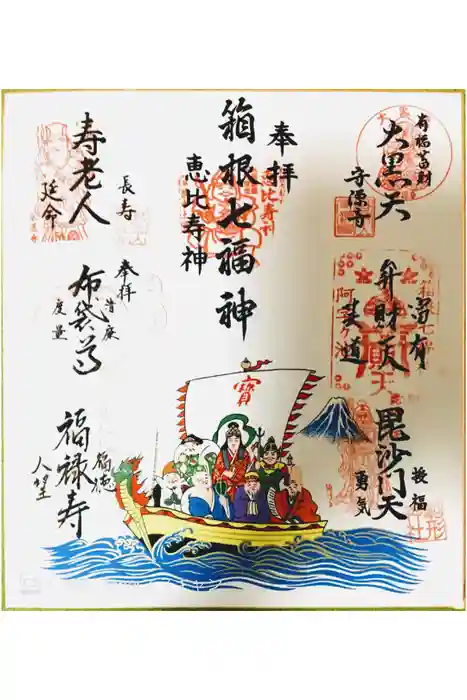 有福蓄財
大黒天
守源寺
奉拝
箱根七福神
恵比寿神
長寿
寿老人
延命
弁財天
奉拝
布袋尊
度量
授福
毘沙門天
勇気
福徳
福禄寿
人望
寶